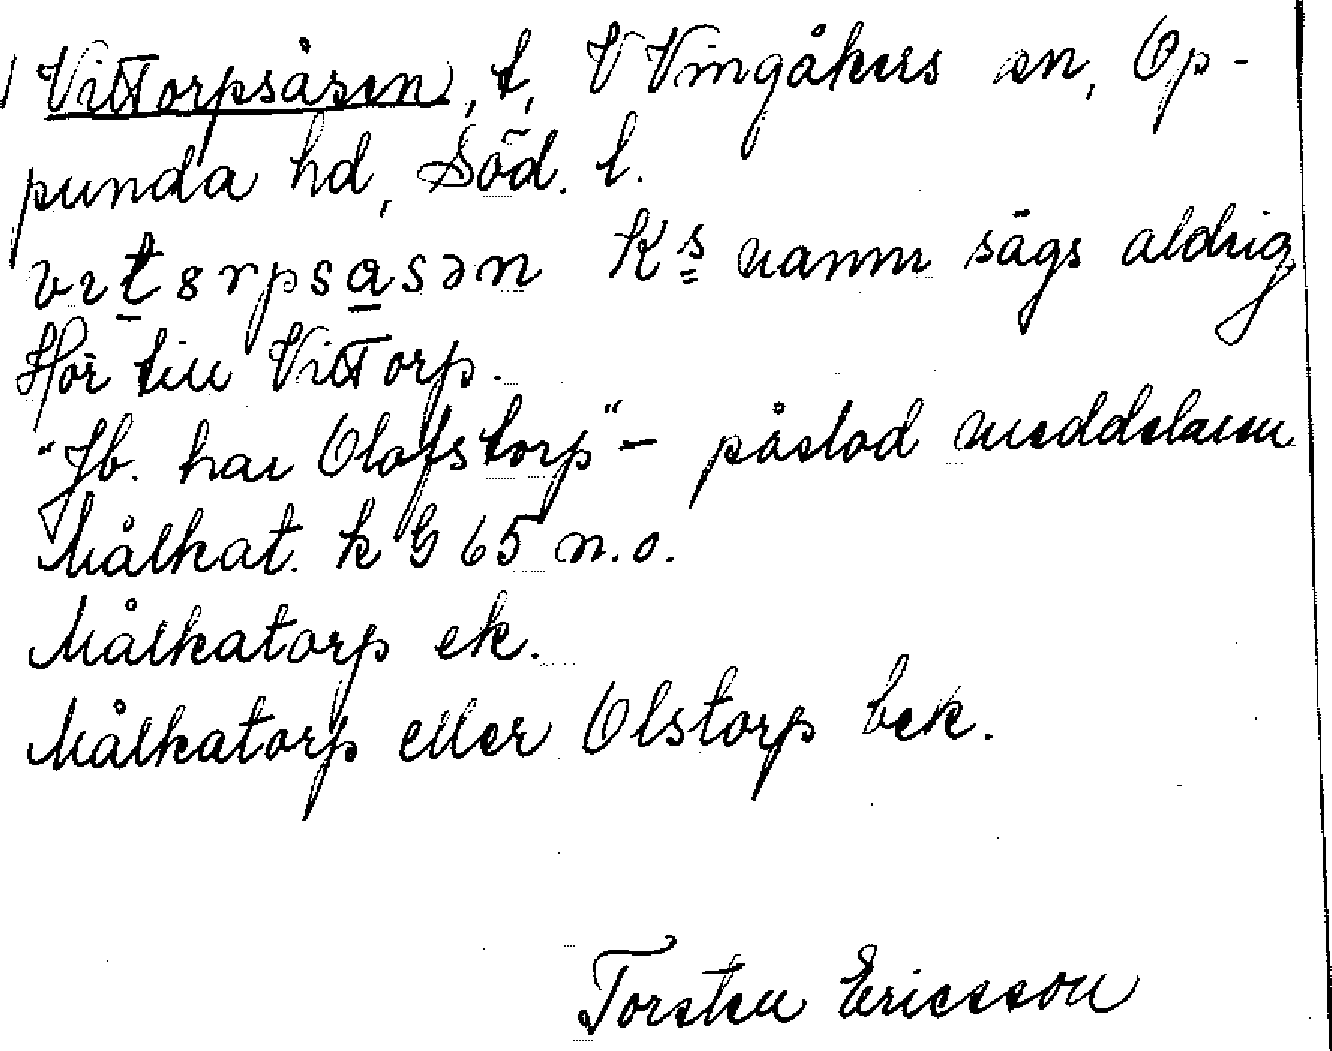 Vittorpsåsen, t, V Vingåkers sn, Op-
punda hd, Söd. l.
vɩtorpsasən Ks namn sägs aldrig
Hör till Vittorp.
"Jb. har Olofstorp" – påstod meddelaren
Målkat. k G 65 n.o.
Målkatorp ek.
Målkatorp eller Olstorp bek.
Torsten Ericsson